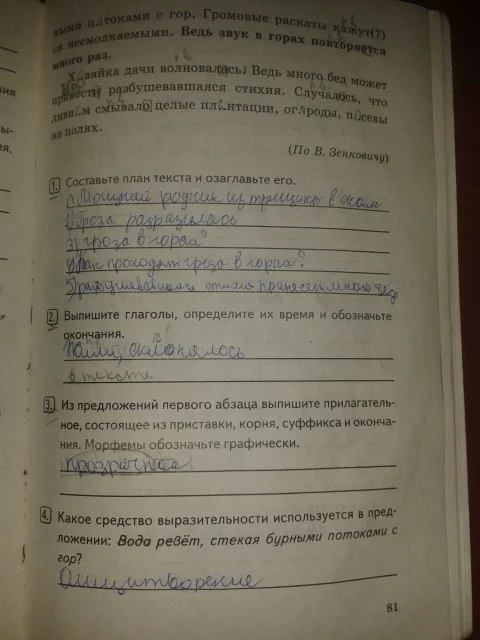 ными п токами с гор. Громовые раскаты кажут(?)
ся несмолкаемыми. Ведь звук в горах повторяется
много раз.
Х зяйка дачи волновалась. Ведь много бед может
принести разбушевавшаяся стихия. Случалось, что
ливн м смывало целые пл нтации, ог роды, п севы
на полях.
(По В. Зенковичу)
1. Составьте план текста и озаглавьте его.
1) Мощный родник из трещины в скале
2) Гроза разразилась
3) гроза в горах?
4) Как проходят гроза в горах?
5) разбушевавшаяся стихия принесет много бед
2. Выпишите глаголы, определите их время и обозначьте
окончания.
склонялось
в тексте
3. Из предложений первого абзаца выпишите прилагатель-
ное, состоящее из приставки, корня, суффикса и оконча-
ния. Морфемы обозначьте графически.
прозрачная
4. Какое средство выразительности используется в пред-
ложении: Вода ревёт, стекая бурными потоками с
гор?
Олицитворение
81